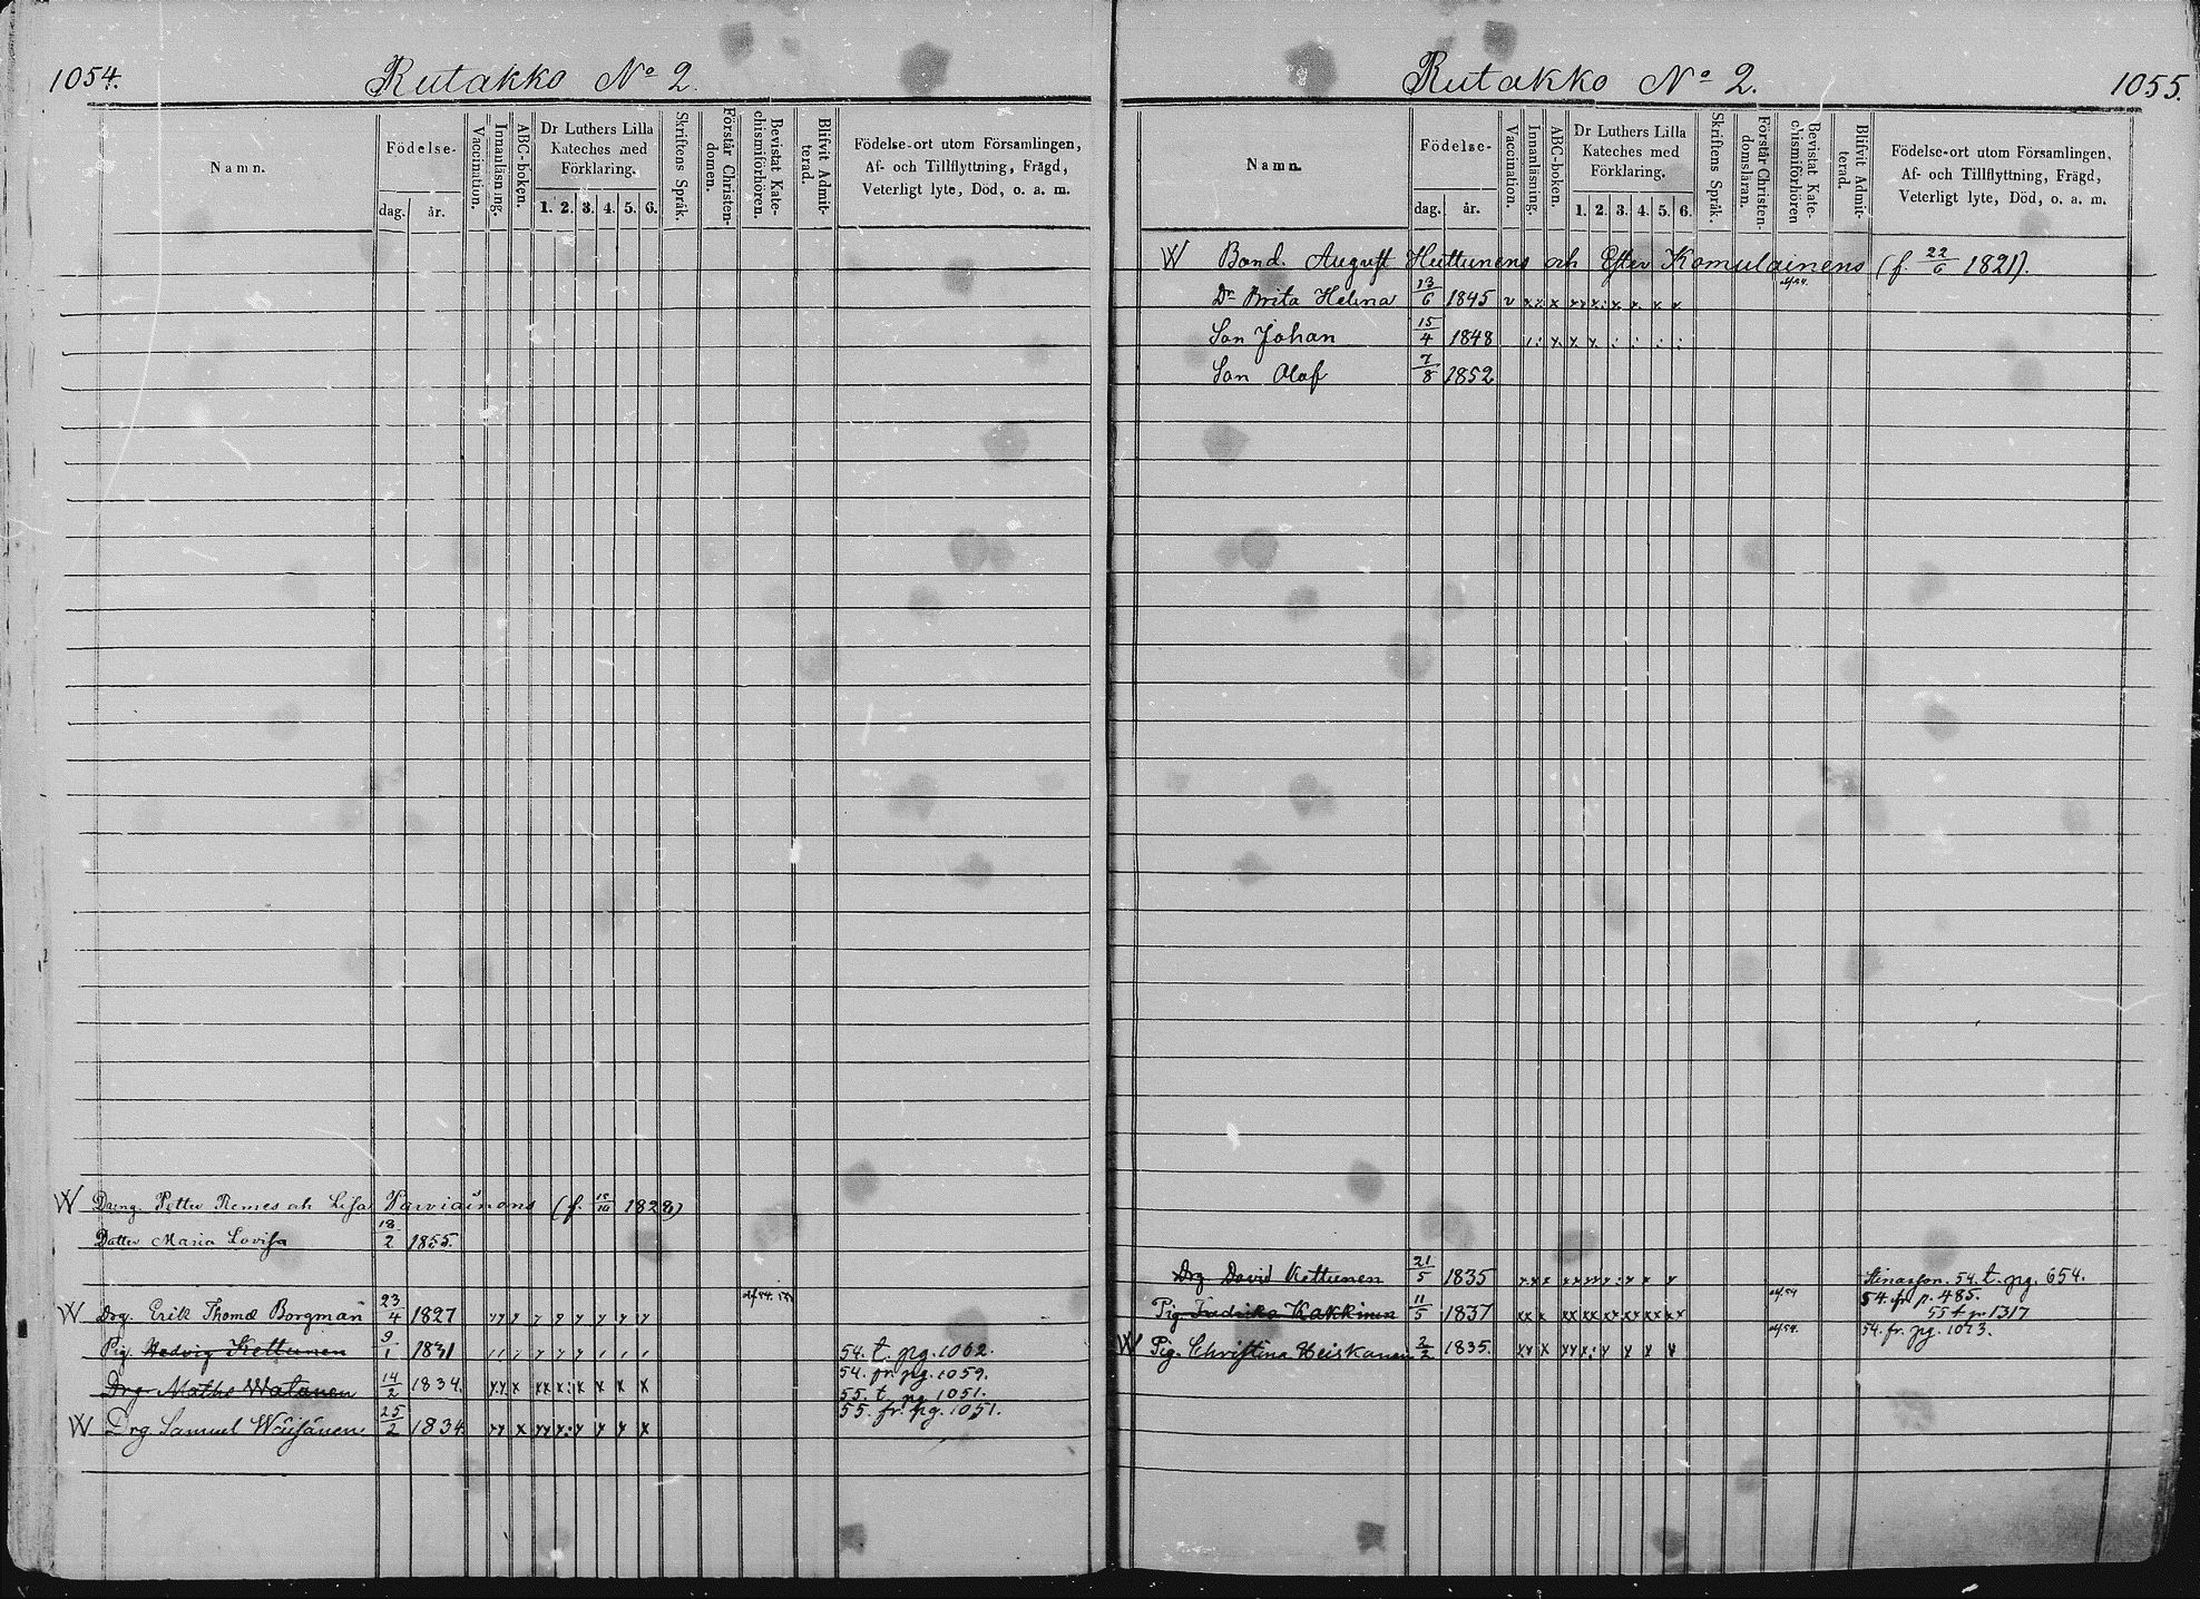 1054.
Rutakko No 2.
Namn.
Födelse-
dag.
år.
Vaccination.
Innanläsning.
ABC-boken.
Dr Luthers Lilla
Kateches med
Förklaring.
1. 2. 3. 4. 5. 6.
Skriftens Språk.
Förstår Christen-
domen.
Bevistat Kate-
chismiförhören.
Blifvit Admit-
terad.
Födelse-ort utom Församlingen,
Af- och Tillflyttning, Frägd,
Veterligt lyte, Död, o. a. m.
W Dreng. Petter Remes och Lisa Parviainens (f. 1828)
Dotter Maria Lovisa 18/2 1855.
W Drg. Erik Thomæ Borgman 23/4 1827
Pig. Hedvig Kettunen 9/1 1831 54. t. pg. 1062.
Drg Maths Watanen 14/2 1834. 54. fr. pg. 1059.
55. t. pg 1051.
W Drg Samuel Wäisänen 25/2 1834 55. fr. pg. 1051.
Rutakko No 2.
1055.
Namn.
Födelse-
dag.
år.
Vaccination.
Innanläsning.
ABC-boken.
Dr Luthers Lilla
Kateches med
Förklaring.
1. 2. 3. 4. 5. 6.
Skriftens Språk.
Förstår Christen-
domsläran.
Bevistat Kate-
chismiförhören
Blifvit Admit-
terad.
Födelse-ort utom Församlingen,
Af- och Tillflyttning, Frägd,
Veterligt lyte, Död, o. a. m.
W Bond. August Huttunens och Ester Komulainens (f. 22/6 1821).
Dr Brita Helena 13/6 1845 v
Son Johan 15/4 1848
Son Olof 7/8 1852
Drg David Kettunen 21/5 1835 54. t. pg. 654.
Pig Fredrika Kakkinen 11/5 1837 54. fr. p. 485.
55 t. pg 1317
W Pig. Christina Heiskanen 2/2 1835. 54. fr. pg. 1073.